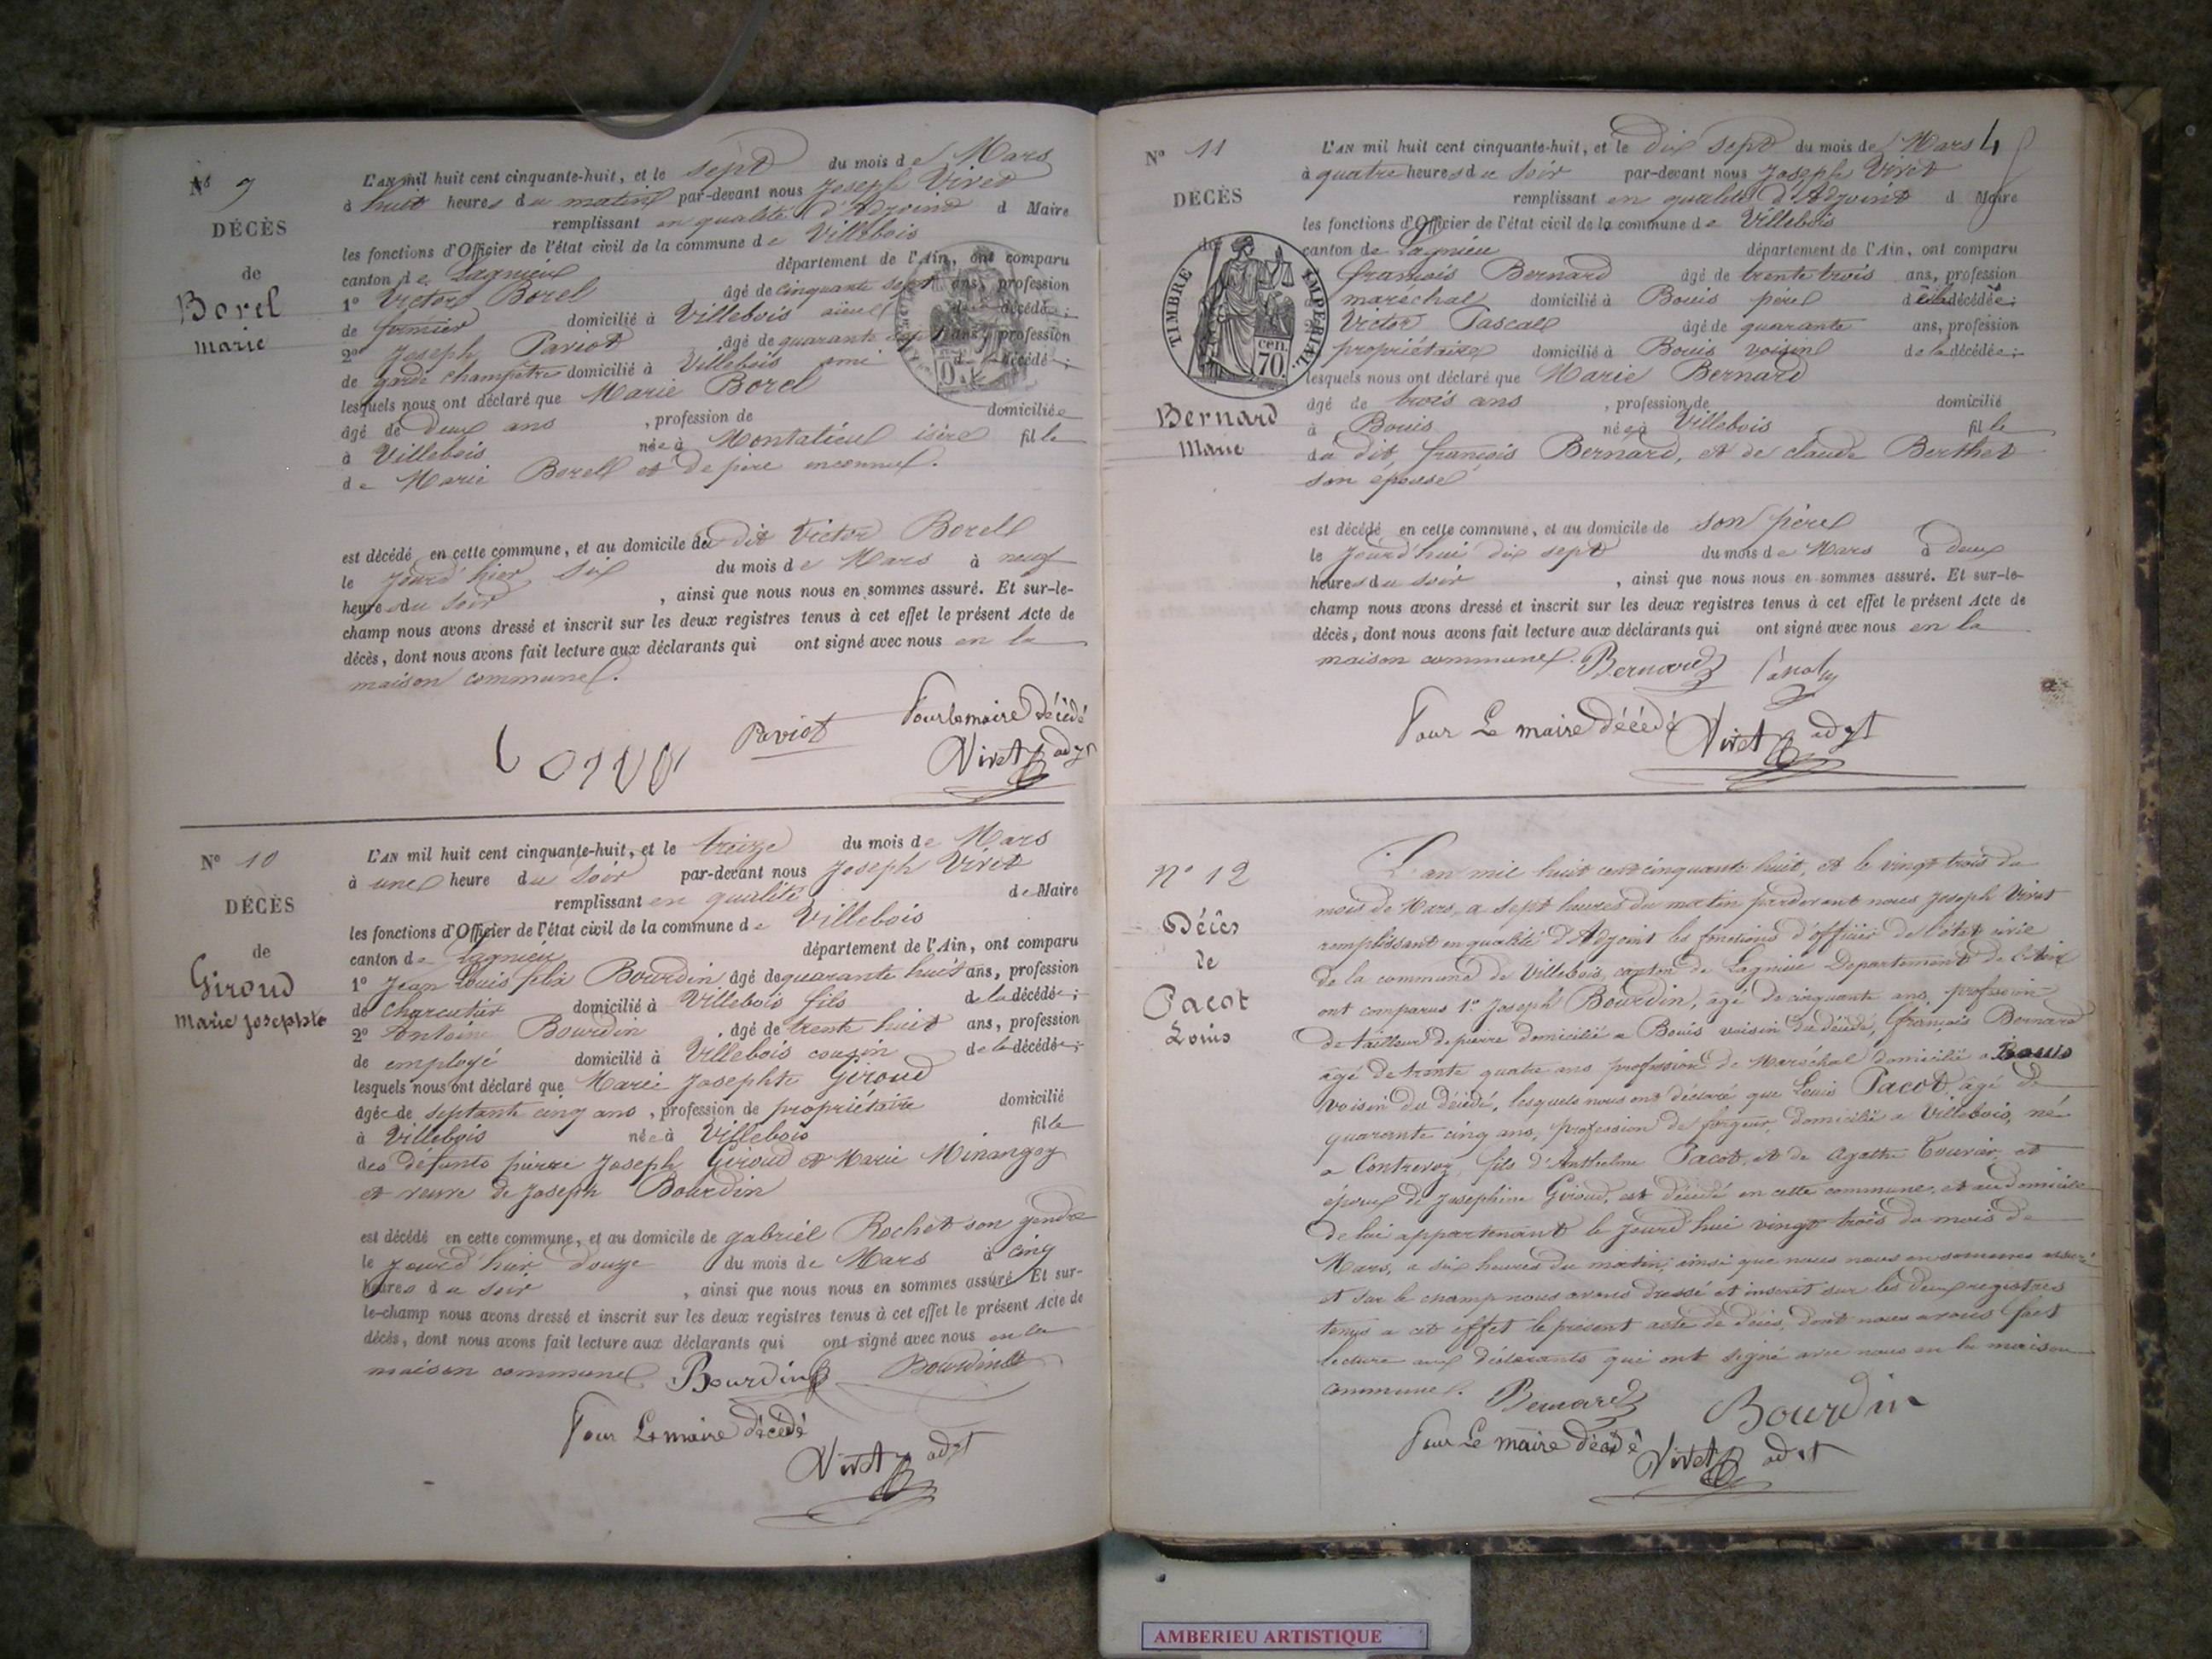 N° 9
DÉCÈS
de
Borel
Marie
L'AN mil huit cent cinquante-huit, et le sept du mois de Mars
à huit heures du matin par-devant nous Joseph Vivet
remplissant en qualité d'Adjoint d Maire
les fonctions d'Officier de l'état civil de la commune de Villebois
canton de Lagnieu département de l'Ain, ont comparu
1° Victor Borel âgé de cinquante sept ans, profession
de fermier domicilié à Villebois aieul de la décédée;
2° Joseph Paviot âgé de quarante sept ans, profession
de garde champêtre domicilié à Villebois ami de la décédée;
lesquels nous ont déclaré que Marie Borel
âgé de deux ans , profession de domiciliée
à Villebois née à Montalieu isère fille
de Marie Borell et de père inconnu.
est décédé en cette commune, et au domicile du dit Victor Borell
le jourd'hier six du mois de Mars à neuf
heures du soir , ainsi que nous nous en sommes assuré. Et sur-le-
champ nous avons dressé et inscrit sur les deux registres tenus à cet effet le présent Acte de
décès, dont nous avons fait lecture aux déclarants qui ont signé avec nous en la
maison commune.
Paviot Pour le maire décédé
Vivet adjt
N° 10
DÉCÈS
de
Giroud
Marie Josephte
L'AN mil huit cent cinquante-huit, et le treize du mois de Mars
à une heure du soir par-devant nous Joseph Vivet
remplissant en qualité de Maire
les fonctions d'Officier de l'état civil de la commune de Villebois
canton de Lagnieu département de l'Ain, ont comparu
1° Jean Louis félix Bourdin âgé de quarante huit ans, profession
de charcutier domicilié à Villebois fils de la décédée;
2° Antoine Bourdin , âgé de trente huit ans, profession
de employé domicilié à Villebois cousin de la décédée;
lesquels nous ont déclaré que Marie Josephte Giroud
âgée de septante cinq ans , profession de propriétaire domicilié
à Villebois née à Villebois fille
des défunts pierre Joseph Giroud et Marie Minangoy
et veuve de Joseph Bourdin
est décédé en cette commune, et au domicile de gabriel Rochet son gendre
le jourd'hier douze du mois de Mars à cinq
heures du soir , ainsi que nous nous en sommes assuré Et sur-
le-champ nous avons dressé et inscrit sur les deux registres tenus à cet effet le présent Acte de
décès, dont nous avons fait lecture aux déclarants qui ont signé avec nous en la
maison commune Bourdin Bourdin
Pour Le maire décédé
Vivet adjt
N° 11
DÉCÈS
de
TIMBRE IMPERIAL
cen.
70.
Bernard
Marie
L'AN mil huit cent cinquante-huit, et le dix sept du mois de Mars 4
à quatre heures du soir par-devant nous Joseph Vivet
remplissant en qualité d'Adjoint d Maire
les fonctions d'Officier de l'état civil de la commune de Villebois
canton de Lagnieu département de l'Ain, ont comparu
françois Bernard âgé de trente trois ans, profession
maréchal domicilié à Bouis père de la décédée;
Victor Pascal âgé de quarante ans, profession
propriétaire domicilié à Bouis voisin de la décédée;
lesquels nous ont déclaré que Marie Bernard
âgé de trois ans , profession de domicilié
à Bouis née à Villebois fille
du dit, françois Bernard, et de claude Berthet
son épouse
est décédé en cette commune, et au domicile de son père
le jourd'hui dix sept du mois de Mars à deux
heures du soir , ainsi que nous nous en sommes assuré. Et sur-le-
champ nous avons dressé et inscrit sur les deux registres tenus à cet effet le présent Acte de
décès, dont nous avons fait lecture aux déclarants qui ont signé avec nous en la
maison commune. Bernard
Pour Le maire décédé Vivet adjt
N° 12
Décès
de
Pacot
Louis
L'an mil huit cent cinquante huit, et le vingt trois du
mois de Mars, a sept heures du matin pardevant nous Joseph Vivet
remplissant en qualité d'Adjoint les fonctions d'officier de l'état civil
de la commune de Villebois, canton de Lagnieu Departement de l'Ain
ont comparus 1° Joseph Bourdin, âgé de cinquante ans, profession
de tailleur de pierre domicilié a Bouis voisin du décédé, françois Bernard
âgé de trente quatre ans profession de Maréchal domicilié a Bouis
voisin du décédé, lesquels nous ont déclaré que Louis Pacot âgé de
quarante cinq ans, profession de forgeur, domicilié a Villebois, né
a Contrevoz, fils d'Anthelme Pacot, et de Agathe Couvier, et
époux de Josephine Giroud, est décédé en cette commune, et au domicile
de lui appartenant le jourd'hui vingt trois du mois de
Mars, a six heures du matin, ainsi que nous nous en sommes assuré
et sur le champ nous avons dressé et inscrit sur les deux registres
tenus a cet effet le présent acte de décès, dont nous avons fait
lecture aux déclarants qui ont signé avec nous en la maison
commune. Bernard Bourdin
Pour Le maire décédé Vivet adjt
AMBERIEU ARTISTIQUE